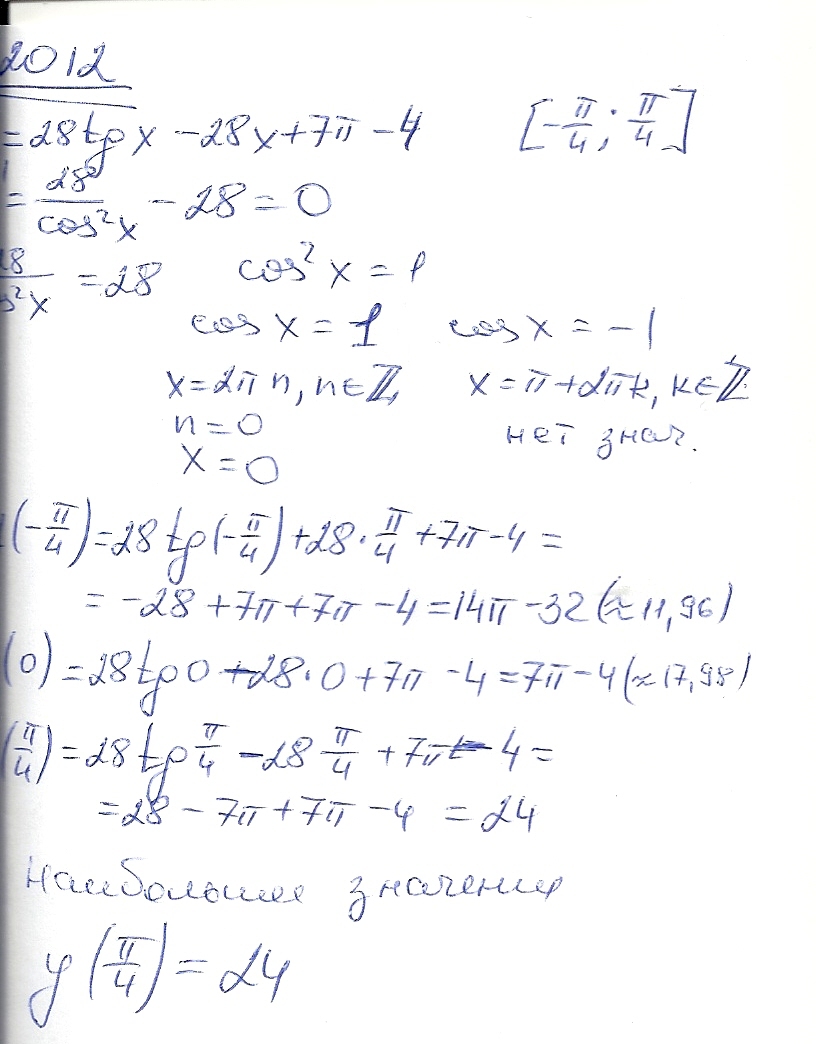 2012
= 28 tg x - 28x + 7π - 4 [-π/4; π/4]
= 28/cos²x - 28 = 0
28/cos²x = 28 cos² x = 1
cos x = 1 cos x = -1
x = 2π n, n∈Z, x = π + 2πk, k∈Z
n = 0 нет знач.
x = 0
(-π/4) = 28 tg(-π/4) + 28·π/4 + 7π - 4 =
= -28 + 7π + 7π - 4 = 14π - 32 (≈11,96)
(0) = 28 tg 0 - 28·0 + 7π - 4 = 7π - 4 (≈17,98)
(π/4) = 28 tg π/4 - 28 π/4 + 7π - 4 =
= 28 - 7π + 7π - 4 = 24
Наибольшее значение
y(π/4) = 24